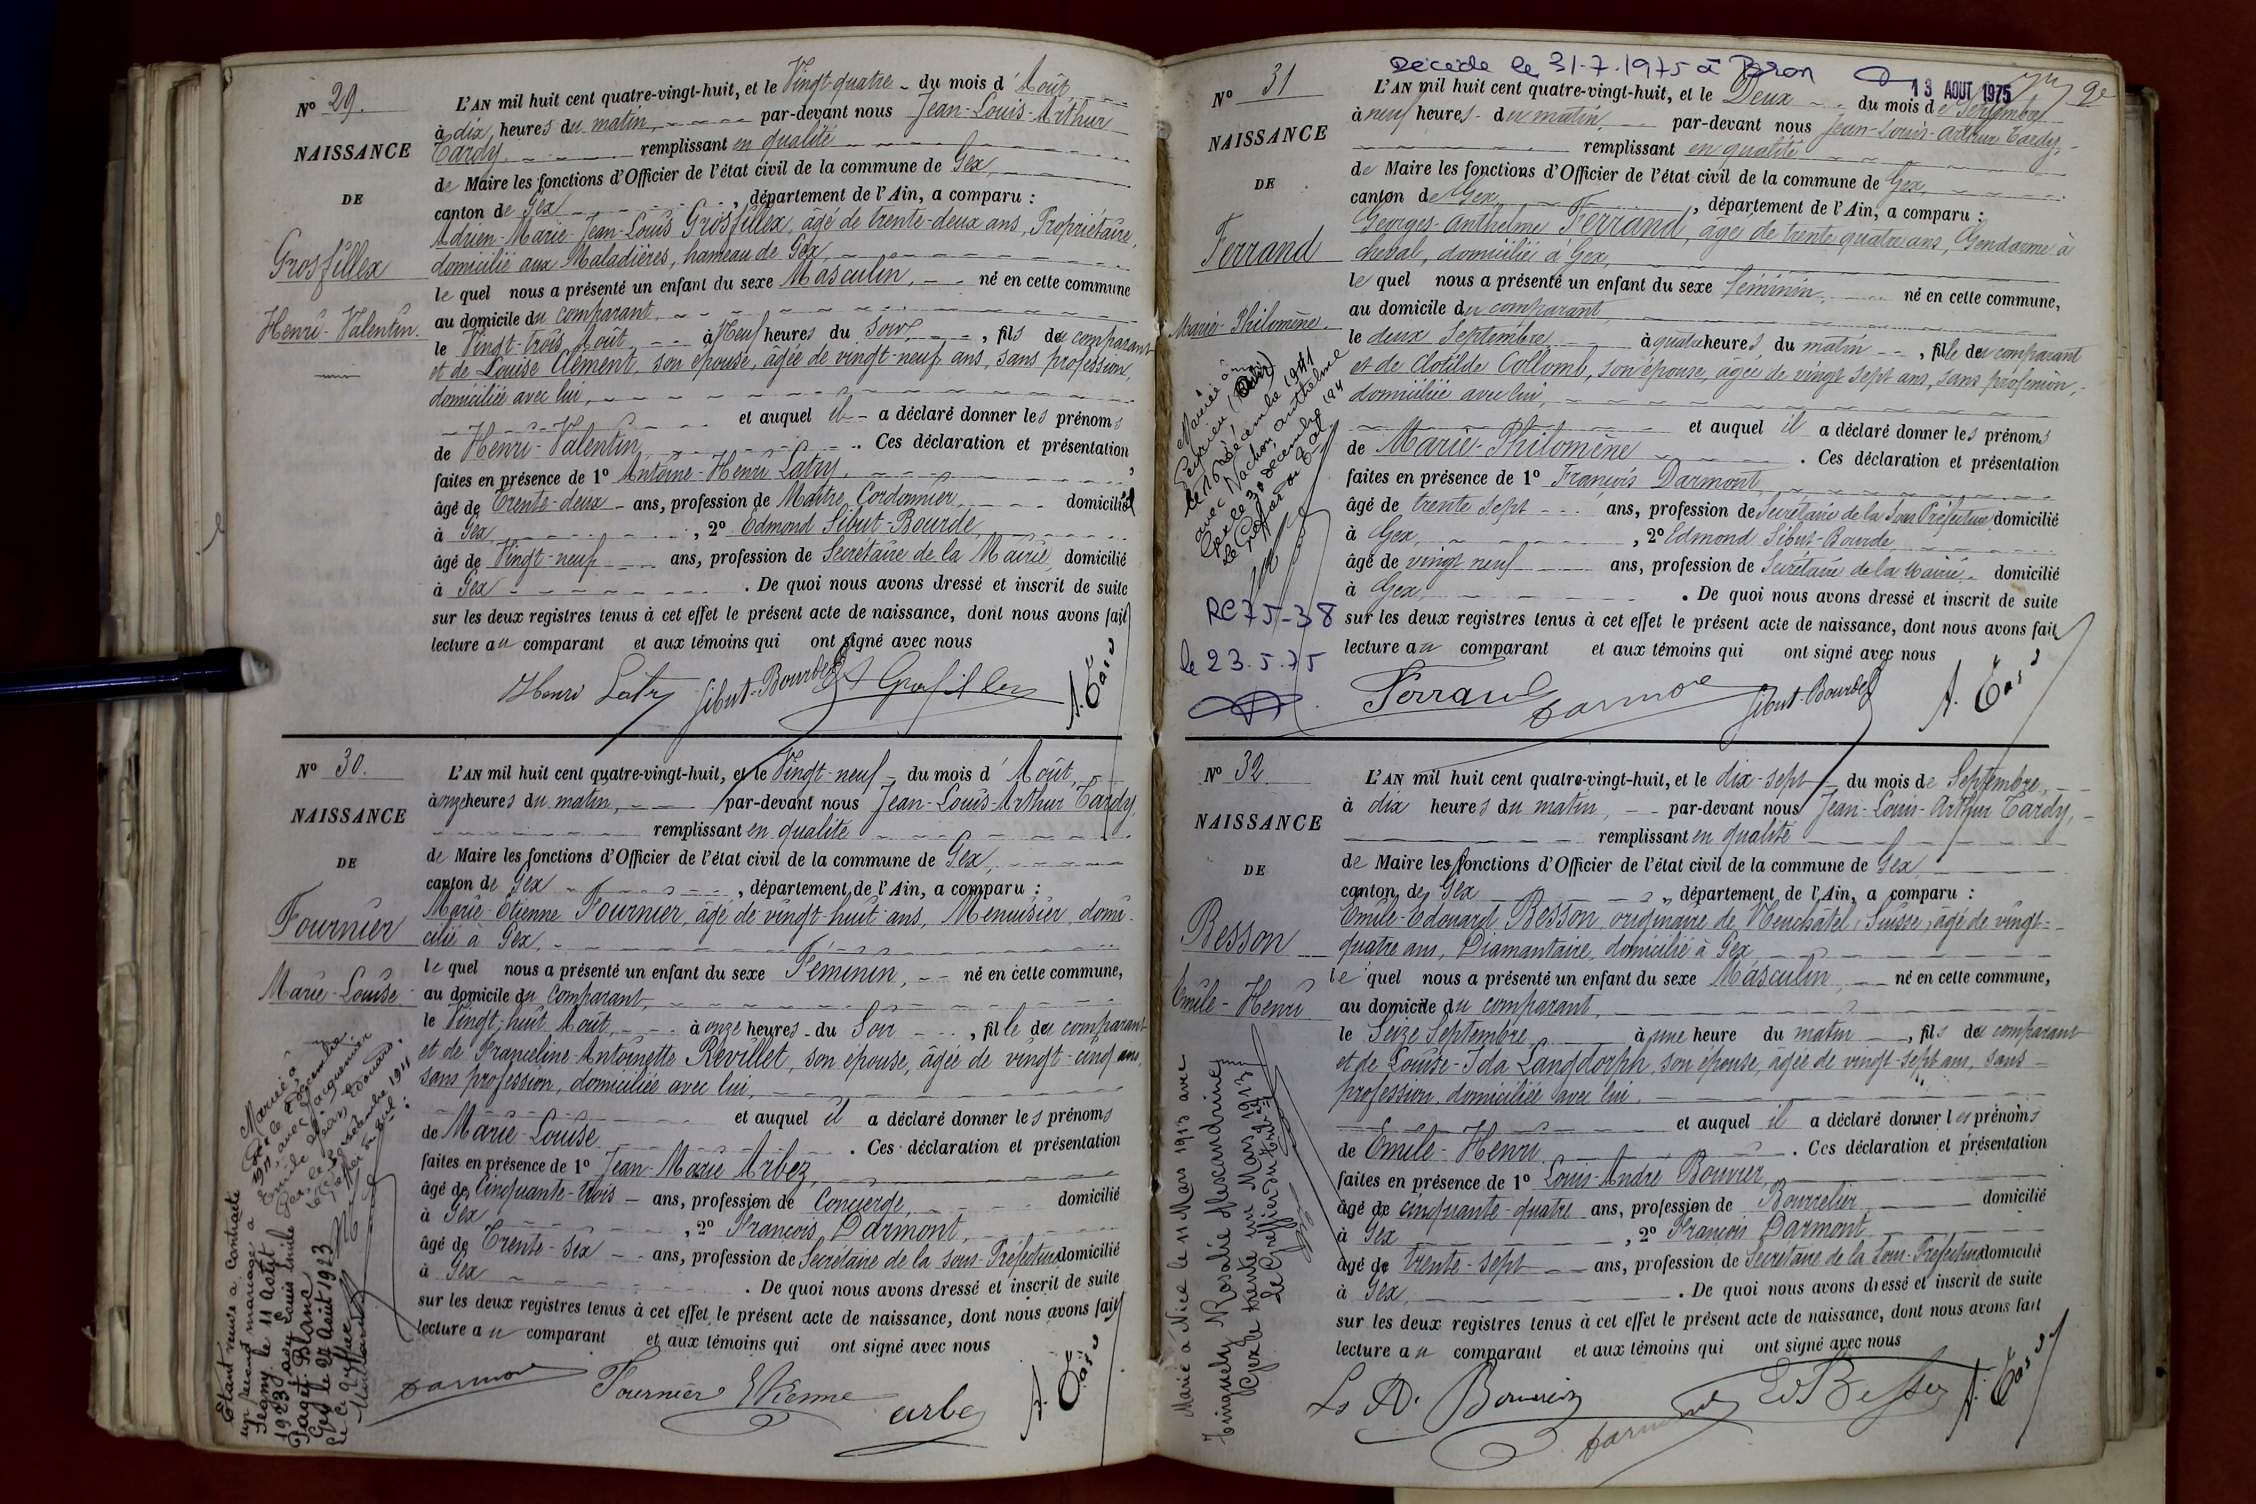 N° 29.
NAISSANCE
DE
Grosfillex
Henri-Valentin.
L'AN mil huit cent quatre-vingt-huit, et le Vingt-quatre du mois d'Août
à dix heures du matin, par-devant nous Jean-Louis-Arthur
Tardy remplissant en qualité
de Maire les fonctions d'Officier de l'état civil de la commune de Gex,
canton de Gex, département de l'Ain, a comparu :
Adrien-Marie-Jean-Louis Grosfillex, âgé de trente-deux ans, Propriétaire,
domicilié aux Maladières, hameau de Gex,
lequel nous a présenté un enfant du sexe Masculin, né en cette commune
au domicile du comparant
le Vingt-trois Août à Neuf heures du soir, fils de comparant
et de Louise Clément, son épouse, âgée de vingt-neuf ans, sans profession,
domiciliée avec lui,
et auquel il a déclaré donner les prénoms
de Henri-Valentin. Ces déclaration et présentation
faites en présence de 1° Antoine-Henri Latry,
âgé de Trente-deux ans, profession de Maître Cordonnier domicilié
à Gex, 2° Edmond Sibut-Bourde,
âgé de Vingt-neuf ans, profession de Secrétaire de la Mairie, domicilié
à Gex. De quoi nous avons dressé et inscrit de suite
sur les deux registres tenus à cet effet le présent acte de naissance, dont nous avons fait
lecture au comparant et aux témoins qui ont signé avec nous
Henri Latry Sibut-Bourde Grosfillex A. Tardy
N° 30.
NAISSANCE
DE
Fournier
Marie-Louise
L'AN mil huit cent quatre-vingt-huit, et le Vingt-neuf du mois d'Août
à onze heures du matin, par-devant nous Jean-Louis-Arthur Tardy,
remplissant en qualité
de Maire les fonctions d'Officier de l'état civil de la commune de Gex,
canton de Gex, département de l'Ain, a comparu :
Marie-Etienne Fournier, âgé de vingt-huit ans, Menuisier, domi-
cilié à Gex,
lequel nous a présenté un enfant du sexe Féminin, né en cette commune,
au domicile du comparant,
le Vingt-huit Août, à onze heures du Soir, fille de comparant
et de Franceline-Antoinette Revillet, son épouse, âgée de vingt-cinq ans,
sans profession, domiciliée avec lui,
et auquel il a déclaré donner les prénoms
de Marie-Louise. Ces déclaration et présentation
faites en présence de 1° Jean-Marie Arbez,
âgé de Cinquante-trois ans, profession de Concierge, domicilié
à Gex, 2° François Darmont,
âgé de Trente-six ans, profession de Secrétaire de la sous-Préfecture domicilié
à Gex. De quoi nous avons dressé et inscrit de suite
sur les deux registres tenus à cet effet le présent acte de naissance, dont nous avons fait
lecture au comparant et aux témoins qui ont signé avec nous
Darmont Fournier Etienne Arbez A. Tardy
Mariée à
Gex le décembre
1911 avec Jacquemier
Emile Jean Edouard.
Gex le décembre 1911
Le Greffier du Trib.
Etant veuve a contracté
un second mariage à
Segny le 11 Août
1923 avec Louis Emile
Paget-Blanc
Gex le 27 Août 1923
Le Greffier
N° 31
NAISSANCE
DE
Ferrand
Marie-Philomène.
Décédée le 31-7-1975 à Bron
13 AOUT 1975
L'AN mil huit cent quatre-vingt-huit, et le Deux du mois de Septembre
à neuf heures du matin, par-devant nous Jean-Louis-Arthur Tardy,
remplissant en qualité
de Maire les fonctions d'Officier de l'état civil de la commune de Gex,
canton de Gex, département de l'Ain, a comparu :
Georges-Anthelme Ferrand, âgé de trente quatre ans, Gendarme à
cheval, domicilié à Gex,
lequel nous a présenté un enfant du sexe féminin né en cette commune,
au domicile du comparant,
le deux Septembre à quatre heures du matin, fille de comparant
et de Clotilde Collomb, son épouse, âgée de vingt sept ans, sans profession,
domiciliée avec lui,
et auquel il a déclaré donner les prénoms
de Marie-Philomène. Ces déclaration et présentation
faites en présence de 1° François Darmont,
âgé de trente sept ans, profession de Secrétaire de la Sous Préfecture domicilié
à Gex, 2° Edmond Sibut-Bourde
âgé de vingt neuf ans, profession de Secrétaire de la Mairie domicilié
à Gex. De quoi nous avons dressé et inscrit de suite
sur les deux registres tenus à cet effet le présent acte de naissance, dont nous avons fait
lecture au comparant et aux témoins qui ont signé avec nous
Ferrand Darmont Sibut-Bourde A. Tardy
Mariée à
Peyrieu (Ain)
le 16 Décembre 1911
avec Vachon Anthelme
Gex le 30 décembre 191
Le Greffier du Trib.
RC 75-38
le 23.5.75
N° 32
NAISSANCE
DE
Besson
Emile-Henri
L'AN mil huit cent quatre-vingt-huit, et le dix-sept du mois de Septembre,
à dix heures du matin, par-devant nous Jean-Louis-Arthur Tardy,
remplissant en qualité
de Maire les fonctions d'Officier de l'état civil de la commune de Gex
canton de Gex, département de l'Ain, a comparu :
Emile-Edouard Besson, originaire de Neuchâtel, Suisse, âgé de vingt-
quatre ans, Diamantaire, domicilié à Gex,
lequel nous a présenté un enfant du sexe Masculin, né en cette commune,
au domicile du comparant,
le Seize Septembre à une heure du matin, fils de comparant
et de Louise-Ida Langdorph, son épouse, âgée de vingt-sept ans, sans
profession, domiciliée avec lui,
et auquel il a déclaré donner les prénoms
de Emile-Henri. Ces déclaration et présentation
faites en présence de 1° Louis-André Bouvier,
âgé de cinquante-quatre ans, profession de Bourrelier domicilié
à Gex, 2° François Darmont
âgé de trente-sept ans, profession de Secrétaire de la Sous-Préfecture domicilié
à Gex. De quoi nous avons dressé et inscrit de suite
sur les deux registres tenus à cet effet le présent acte de naissance, dont nous avons fait
lecture au comparant et aux témoins qui ont signé avec nous
Ls A. Bouvier Darmont Ed Besson A. Tardy
Marié à Nice le 11 Mars 1913 avec
Tinguely Rosalie Alexandrine
Gex le trente un Mars 1913
Le Greffier du Trib.